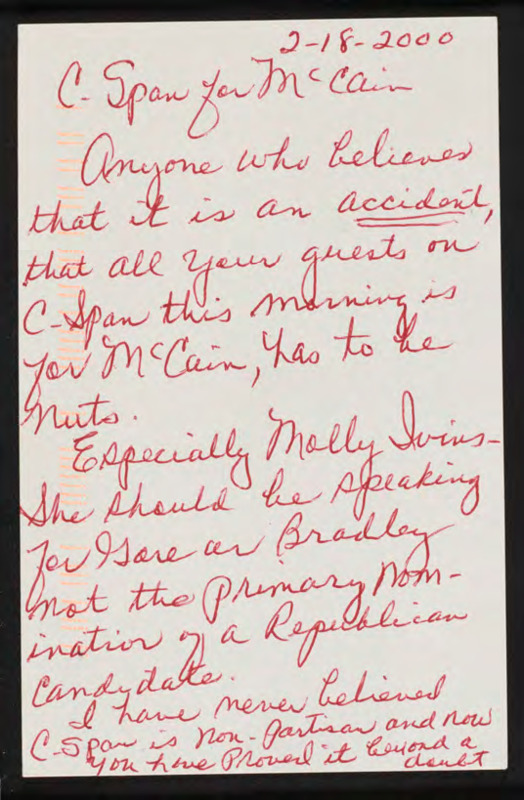 2-18-2000
C-Span for McCain
Anyone who believes
that it is an accident,
that all your guests on
C-Span this morning is
for McCain, has to be
nuts.
Especially Molly Ivins-
She should be speaking
for Gore or Bradley
not the primary nom-
ination of a Republican
candydate.
I have never believed
C-Span is non-partisan and now
you have proved it beyond a
doubt